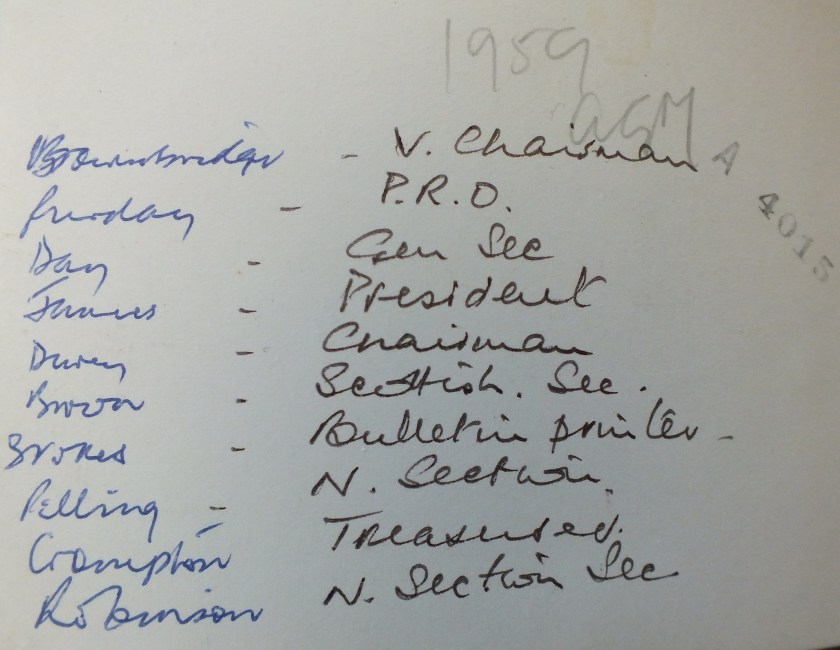 1959
AGM
Brownbridge - V. Chairman
A 4015
- P.R.O.
Day - Gen Sec
- President
- Chairman
Brown - Scottish. Sec.
- Bulletin printer -
Pelling - N. Section.
Crompton Treasurer.
Robinson N. Section Sec